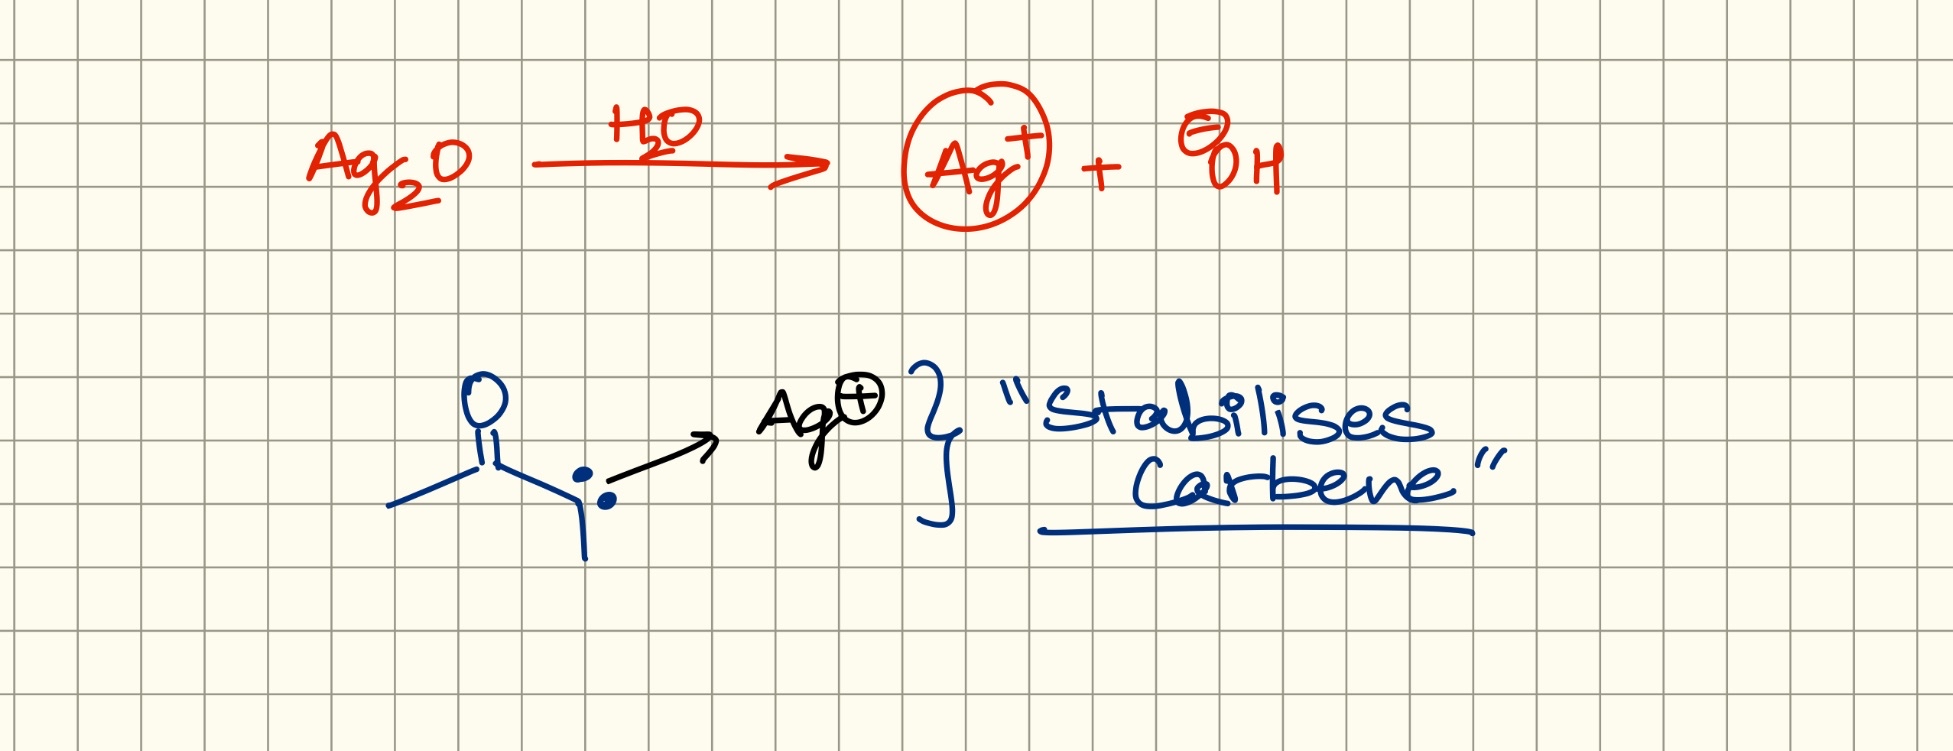 Ag₂O H₂O → Ag⁺ + ⊖OH
O
Ag⊕ } "Stabilises
Carbene"